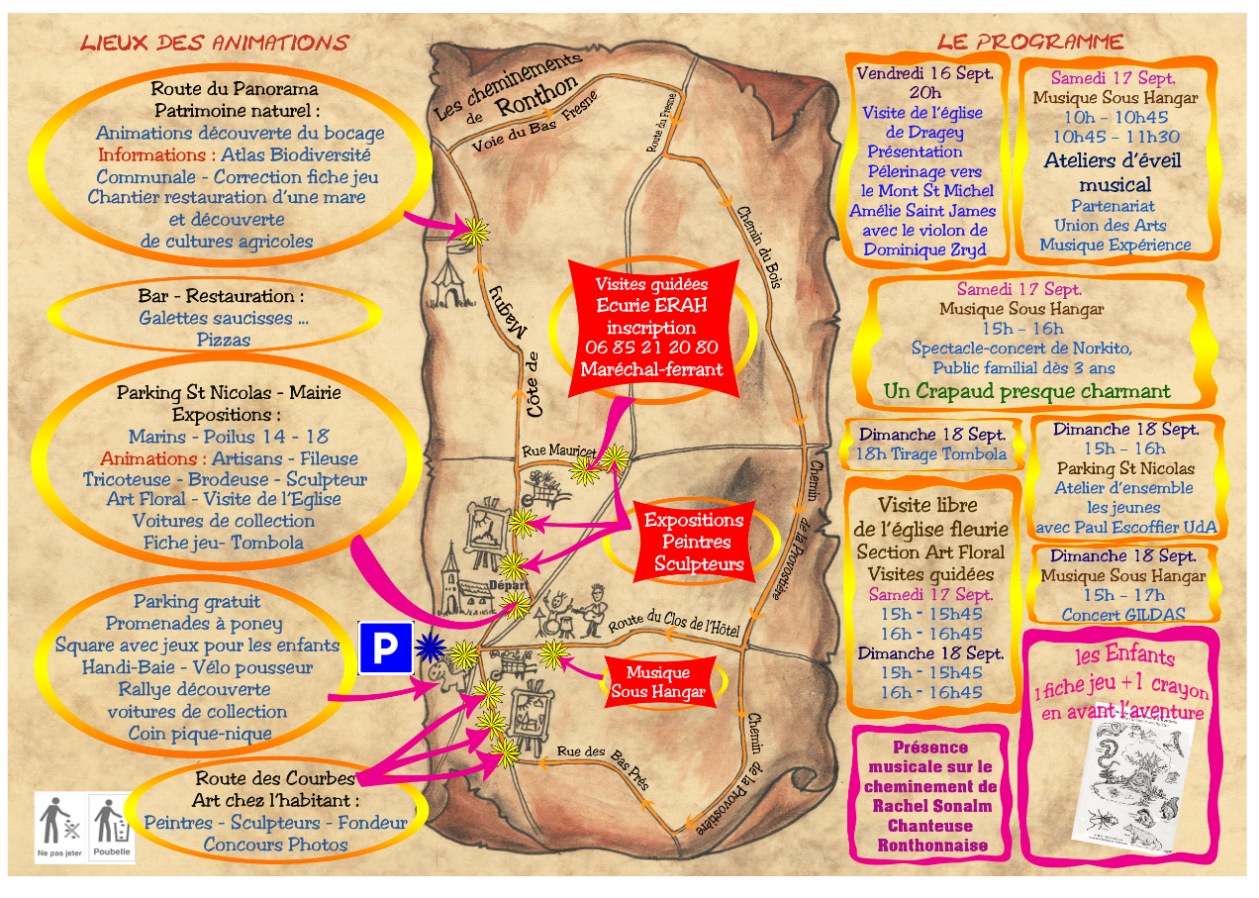 LIEUX DES ANIMATIONS
Route du Panorama
Patrimoine naturel :
Animations découverte du bocage
Informations : Atlas Biodiversité
Communale - Correction fiche jeu
Chantier restauration d'une mare
et découverte
de cultures agricoles
Bar - Restauration :
Galettes saucisses ...
Pizzas
Parking St Nicolas - Mairie
Expositions :
Marins - Poilus 14 - 18
Animations : Artisans - Fileuse
Tricoteuse - Brodeuse - Sculpteur
Art Floral - Visite de l'Eglise
Voitures de collection
Fiche jeu- Tombola
Parking gratuit
Promenades à poney
Square avec jeux pour les enfants
Handi-Baie - Vélo pousseur
Rallye découverte
voitures de collection
Coin pique-nique
Route des Courbes
Art chez l'habitant :
Peintres - Sculpteurs - Fondeur
Concours Photos
Ne pas jeter
Poubelle
Les cheminements
de Ronthon
Voie du Bas Fresne
Route du Fresne
Chemin du Bois
Magny
Côte de
Visites guidées
Ecurie ERAH
inscription
06 85 21 20 80
Maréchal-ferrant
Rue Mauricet
Expositions
Peintres
Sculpteurs
Chemin de la Provostière
Départ
P
Route du Clos de l'Hôtel
Musique
Sous Hangar
Rue des Bas Prés
Chemin de la Provostière
LE PROGRAMME
Vendredi 16 Sept.
20h
Visite de l'église
de Dragey
Présentation
Pélerinage vers
le Mont St Michel
Amélie Saint James
avec le violon de
Dominique Zryd
Samedi 17 Sept.
Musique Sous Hangar
10h - 10h45
10h45 - 11h30
Ateliers d'éveil
musical
Partenariat
Union des Arts
Musique Expérience
Samedi 17 Sept.
Musique Sous Hangar
15h - 16h
Spectacle-concert de Norkito,
Public familial dès 3 ans
Un Crapaud presque charmant
Dimanche 18 Sept.
18h Tirage Tombola
Dimanche 18 Sept.
15h - 16h
Parking St Nicolas
Atelier d'ensemble
les jeunes
avec Paul Escoffier UdA
Visite libre
de l'église fleurie
Section Art Floral
Visites guidées
Samedi 17 Sept.
15h - 15h45
16h - 16h45
Dimanche 18 Sept.
15h - 15h45
16h - 16h45
Dimanche 18 Sept.
Musique Sous Hangar
15h - 17h
Concert GILDAS
les Enfants
1 fiche jeu + 1 crayon
en avant l'aventure
Présence
musicale sur le
cheminement de
Rachel Sonalm
Chanteuse
Ronthonnaise